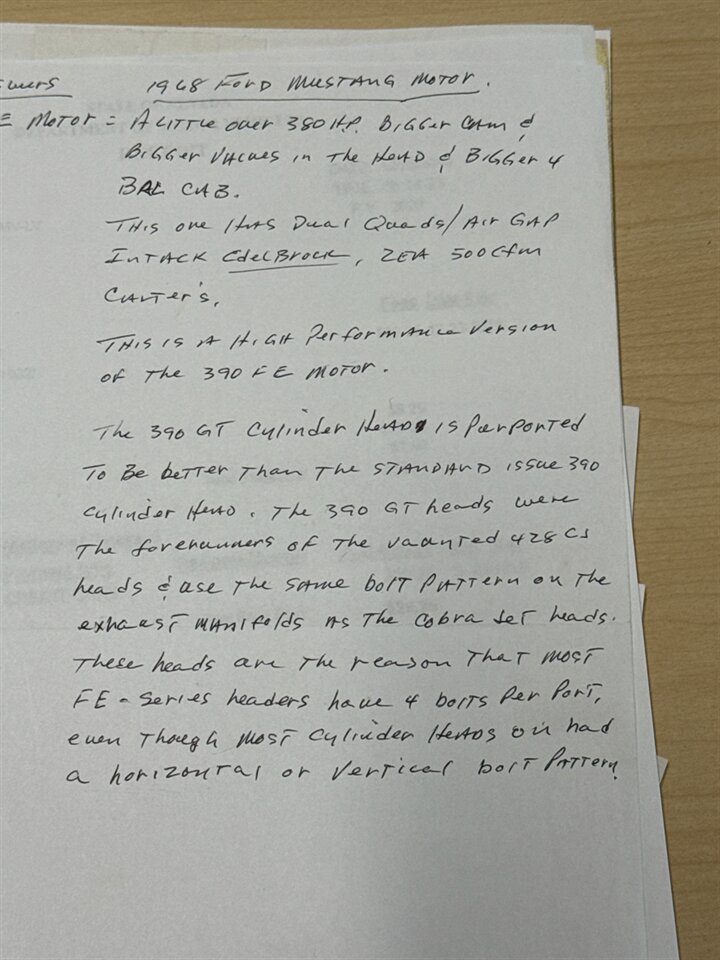 1968 FORD MUSTANG MOTOR.
MOTOR = A LITTLE over 380 H.P. BIGGER CAM &
BIGGER VALVES in The HeAD & BIGGER 4
BRL CAB.
THIS one HAS Dual Quads/Air GAP
INTACK EdelBrock, 2EA 500 Cfm
CARTER'S,
THIS IS A HIGH Performance Version
of The 390 FE MOTOR.
The 390 GT Cylinder HeAD IS PurPORTED
To Be better Than The STANDARD issue 390
Cylinder HeAD. The 390 GT heads were
The forerunners of The vaunted 428 CJ
heads & use The SAME bolt PATTern on The
exhaust MANIfolds AS The Cobra JeT heads.
These heads are The reason That most
FE-Series headers have 4 bolts Per Port,
even Though MOST Cylinder HeADS had
a horizontal or Vertical bolt PATTern.